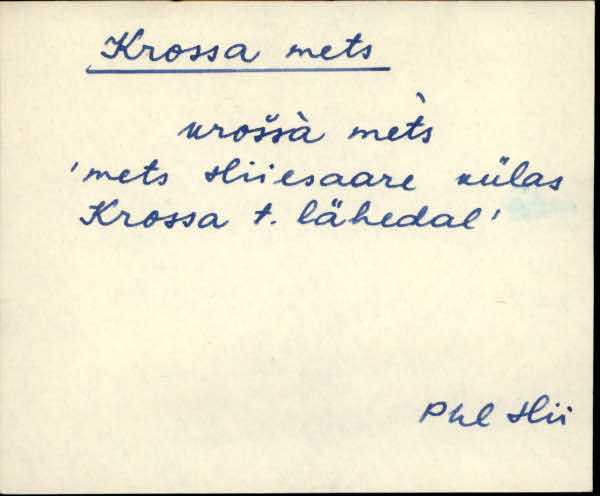 Krossa mets
kroššà met̀s
'mets Hiiesaare külas
Krossa t. lähedal'
Phl Hii